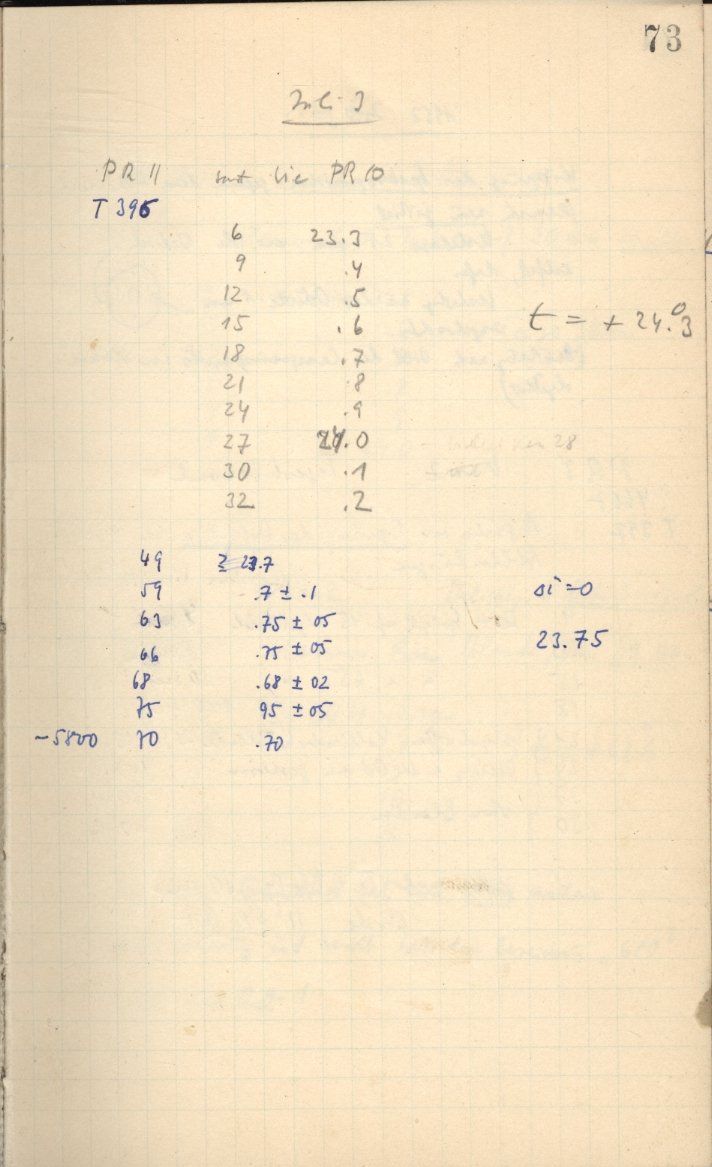 73
Juli 3
PR 11 PR 10
T 395
6 23.3
9 .4
12 .5
15 .6
t = + 24.°3
18 .7
21 .8
24 .9
27 24.0
30 .1
32 .2
49 .7
59 .7 ± .1
Δi = 0
63 .75 ± 05
23.75
66 .75 ± 05
68 .68 ± 02
75 95 ± 05
-5800 70 .70